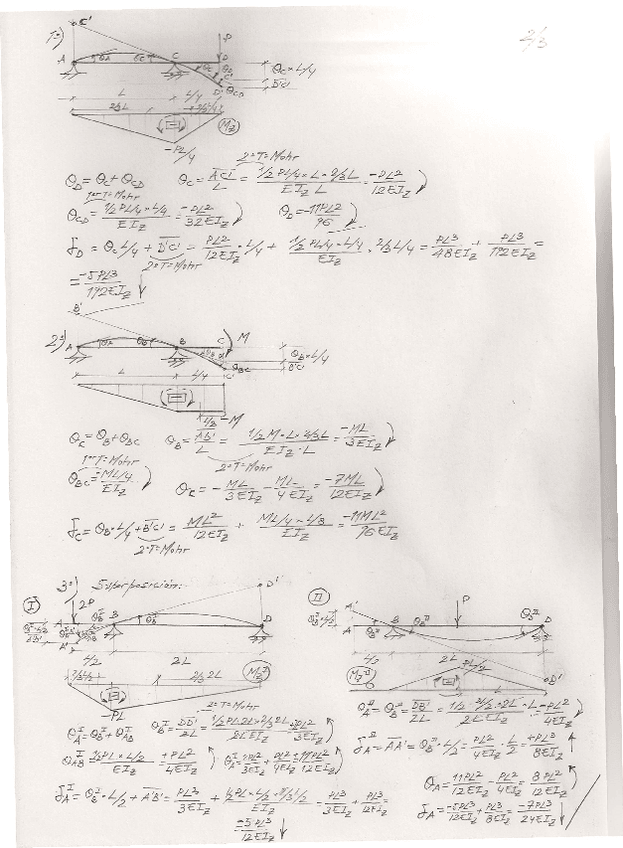 2/3
1º)
C'
P
A
θA
θC
C
D
θC × L/4
D'C'
θCD
L
L/4
2/3L
Mz
-PL/4
2º T=Mohr
θD = θC + θCD
θC = AC'/L = (1/2 PL/4 × L · 2/3L)/(EIz L) = -PL²/12EIz
1er T=Mohr
θCD = (1/2 PL/4 × L/4)/EIz = -PL²/32EIz
θD = -11PL²/96
δD = θC L/4 + D'C' = PL²/12EIz · L/4 + (1/2 PL/4 · L/4)/EIz · 2/3 L/4 = PL³/48EIz + PL³/192EIz =
2º T=Mohr
= -5PL³/192EIz
B'
2º)
A
θA
θB
B
C
M
θB × L/4
B'C'
θBC
C'
L
L/4
-M
θC = θB + θBC
θB = AB'/L = (1/2 M · L × 2/3L)/(EIz · L) = -ML/3EIz
1er T=Mohr
2º T=Mohr
θBC = ML/4/EIz
θC = -ML/3EIz - ML/4EIz = -7ML/12EIz
δC = θB · L/4 + B'C' = ML²/12EIz + (ML/4 × L/8)/EIz = -11ML²/96EIz
2º T=Mohr
3º) Superposición:
I
2P
B
D'
D
L/2
2L
2/3 2L
MzI
-PL
2º T=Mohr
θAI = θBI + θABI
θBI = DD'/2L = (1/2 PL 2L × 2/3 2L)/(2L EIz) = 2PL²/3EIz
θABI = (1/2 PL × L/2)/EIz = +PL²/4EIz
θAI = 2PL²/3EIz + PL²/4EIz = 11PL²/12EIz
δAI = θBI · L/2 + A'B' = PL³/3EIz + (1/2 PL × L/2 × 2/3 L/2)/EIz = PL³/3EIz + PL³/12EIz =
-5PL³/12EIz
II
A'
A
B
P
D
L/2
2L
PL/2
MzII
D'
θAII = θBII = DD'/2L = -PL²/4EIz
δAII = AA' = θBII · L/2 = PL²/4EIz · L/2 = +PL³/8EIz
θA = 11PL²/12EIz - PL²/4EIz = 8PL²/12EIz
δA = -5PL³/12EIz + PL³/8EIz = -7PL³/24EIz